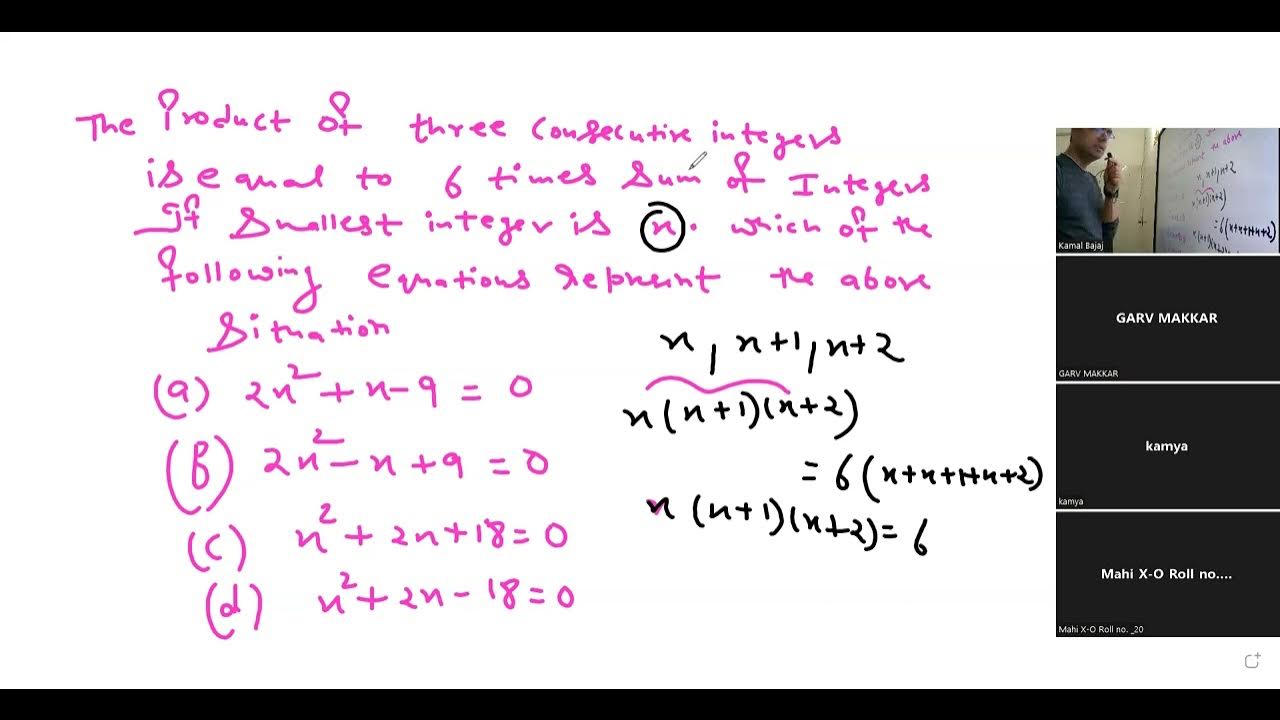 The Product of three consecutive integers
is equal to 6 times sum of Integers
If Smallest integer is n. which of the
following equations represent the above
Situation
n, n+1, n+2
(a) 2n² + n - 9 = 0
n(n+1)(n+2)
(B) 2n² - n + 9 = 0
= 6(n+n+1+n+2)
(c) n² + 2n + 18 = 0
n (n+1)(n+2) = 6
(d) n² + 2n - 18 = 0
Kamal Bajaj
GARV MAKKAR
GARV MAKKAR
kamya
kamya
Mahi X-O Roll no....
Mahi X-O Roll no. _20